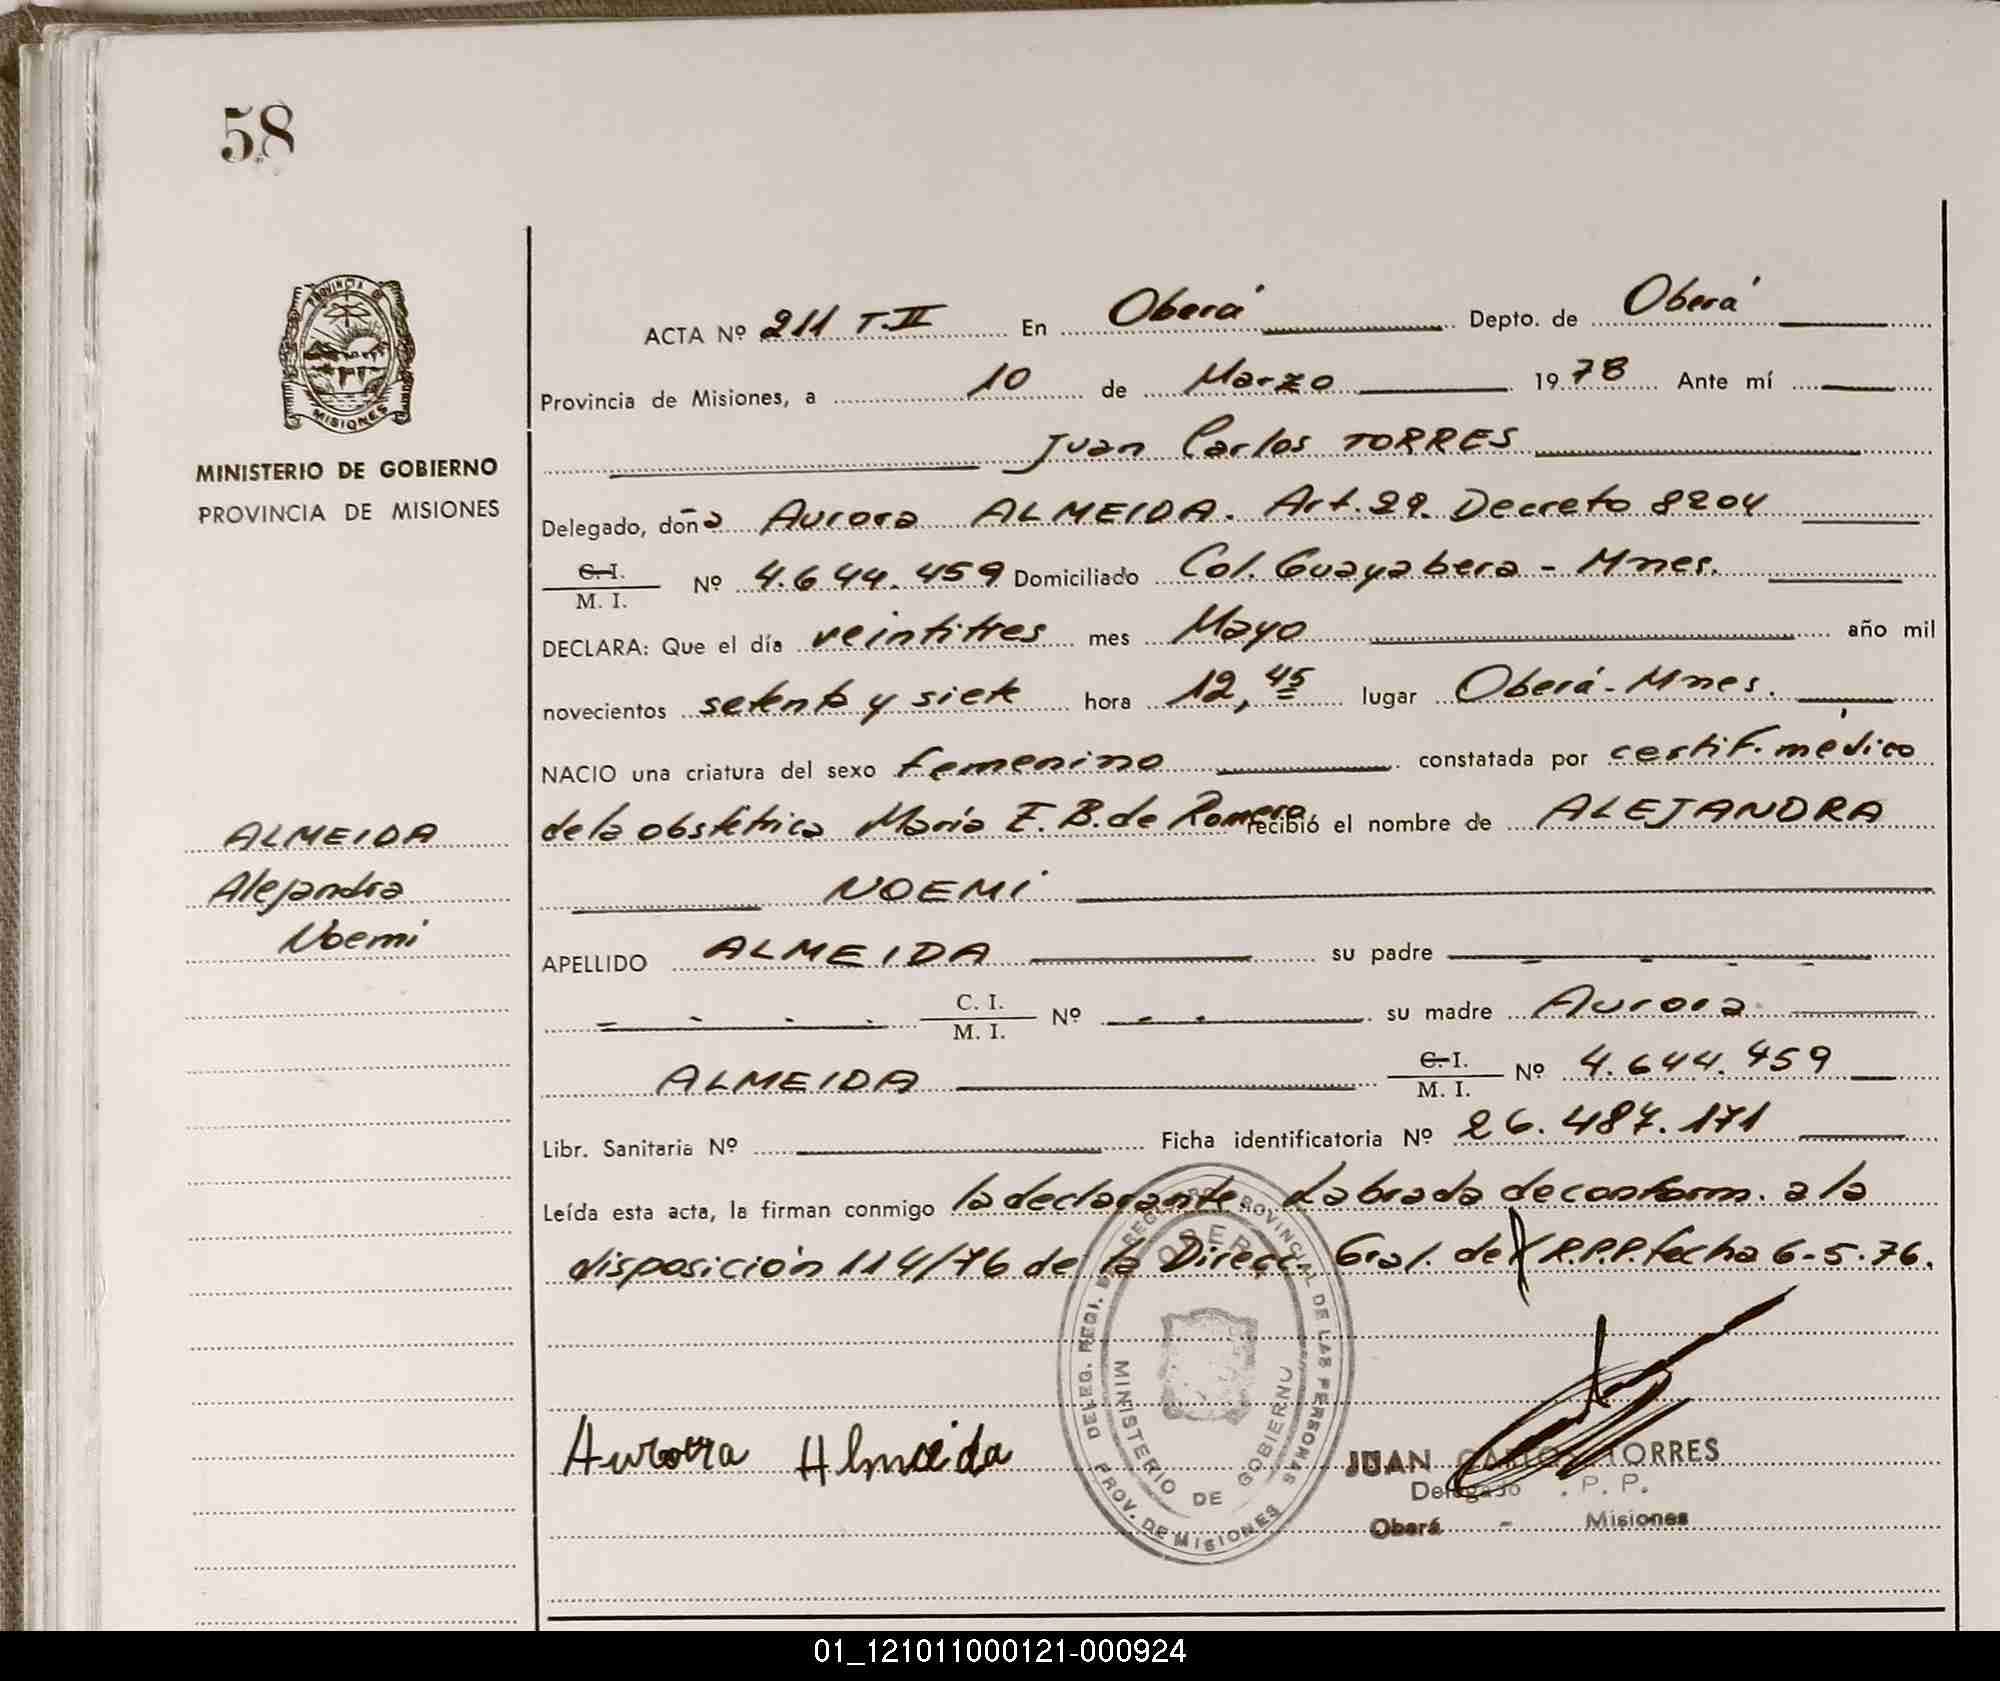 58
PROVINCIA DE
MISIONES
MINISTERIO DE GOBIERNO
PROVINCIA DE MISIONES
ACTA Nº 211 T.II En Oberá Depto. de Oberá
Provincia de Misiones, a 10 de Marzo 1978 Ante mí
Juan Carlos TORRES
Delegado, doña Aurora ALMEIDA. Art. 29. Decreto 8204
C. I.
M. I. Nº 4.644.459 Domiciliado Col. Guayabera - Mnes.
DECLARA: Que el día veintitres mes Mayo año mil
novecientos setenta y siete hora 12,45 lugar Oberá - Mnes.
NACIO una criatura del sexo femenino constatada por certif. médico
de la obstétrica María E. B. de Romero recibió el nombre de ALEJANDRA
NOEMI
APELLIDO ALMEIDA su padre
C. I.
M. I. Nº su madre Aurora
ALMEIDA C. I.
M. I. Nº 4.644.459
Libr. Sanitaria Nº Ficha identificatoria Nº 26.487.171
Leída esta acta, la firman conmigo la declarante. Labrada de conform. a la
disposición 114/76 de la Direcc. Gral. del R.P.P. fecha 6-5-76.
ALMEIDA
Alejandra
Noemi
Aurorra Almeida
DELEG. REGI. REG. PROVINCIAL DE LAS PERSONAS
OBERA
MINISTERIO DE GOBIERNO
PROV. DE MISIONES
JUAN CARLOS TORRES
Delegado . P. P.
Oberá - Misiones
01_121011000121-000924